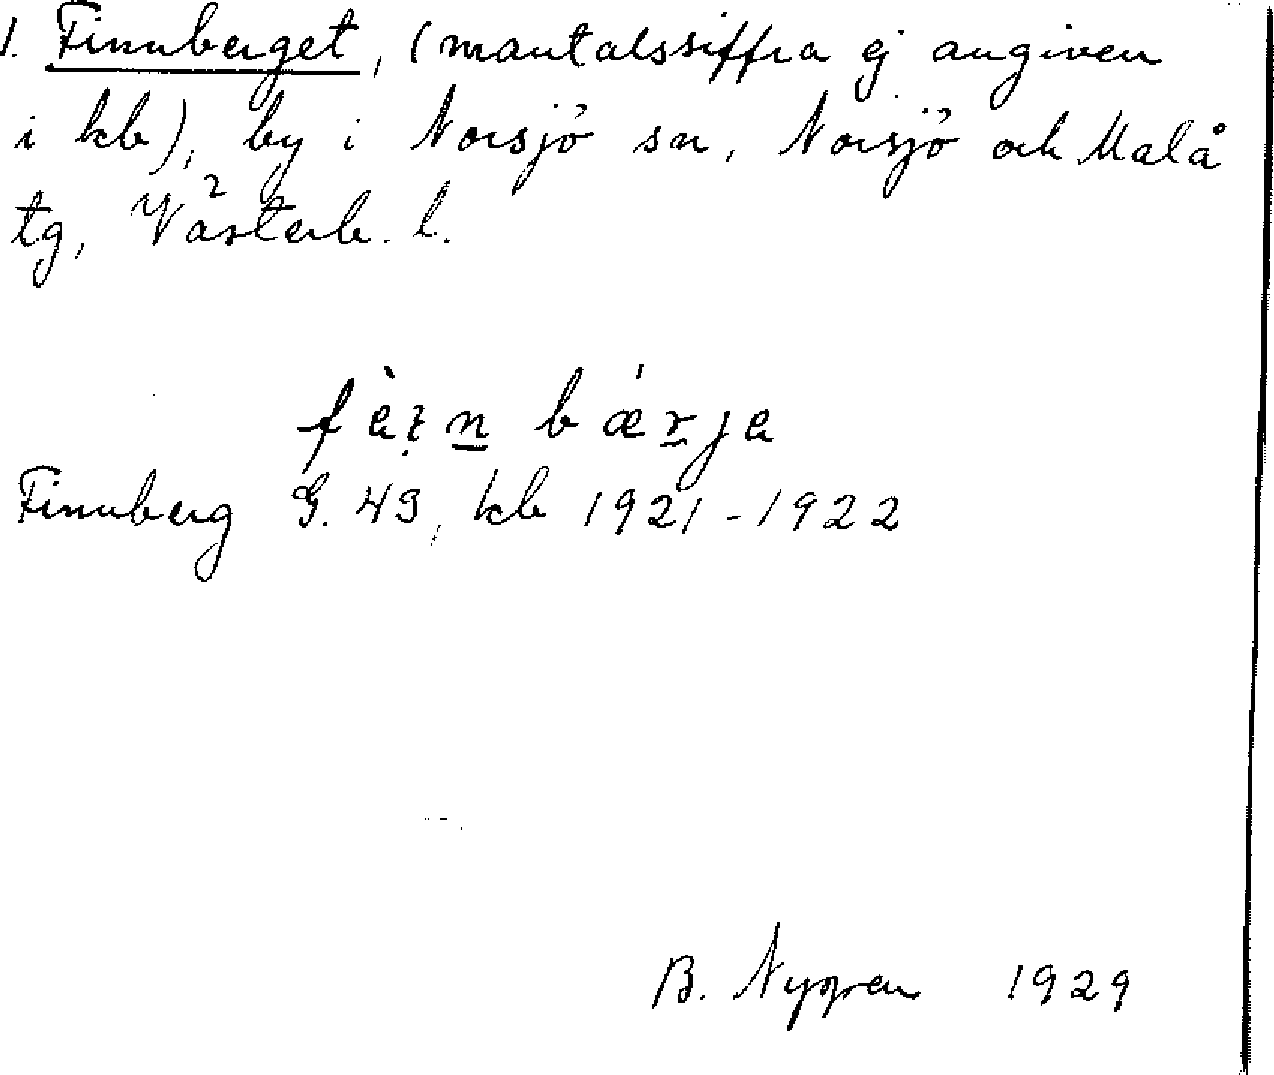 1. Finnberget, (mantalssiffra ej angiven
i kb), by i Norsjö sn, Norsjö och Malå
tg, Västerb. l.
Finnberg G. 43, kb 1921-1922
B. Nygren 1929